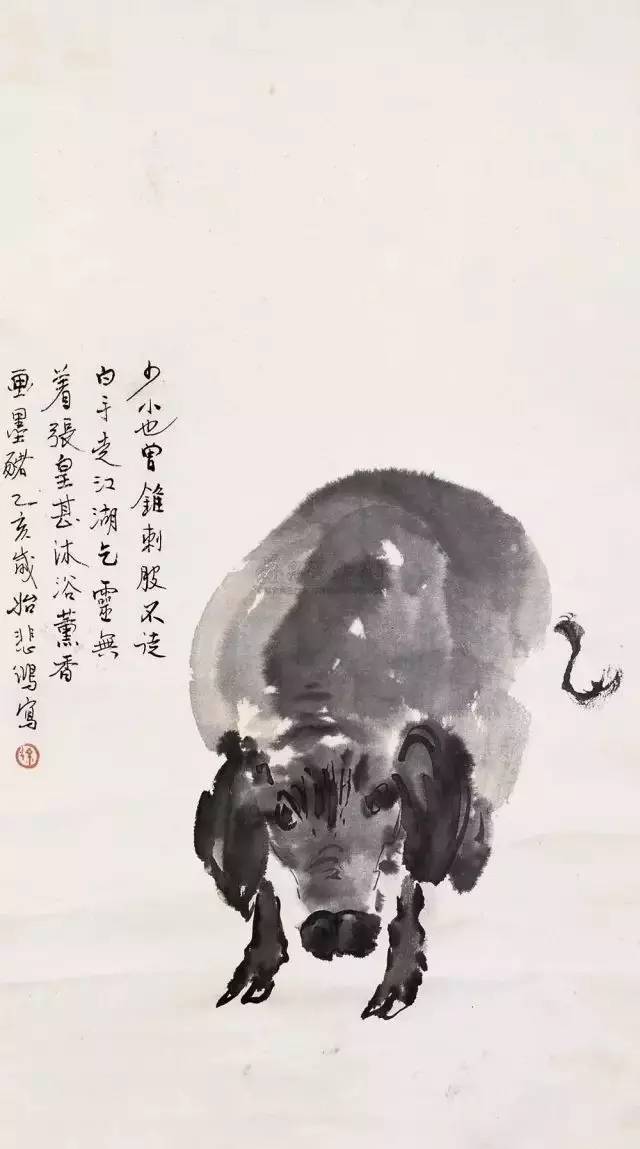 少小也曾錐刺股不徒
白手走江湖乞靈無
着張皇甚沐浴薰香
画墨豬 乙亥歲始 悲鴻寫
徐